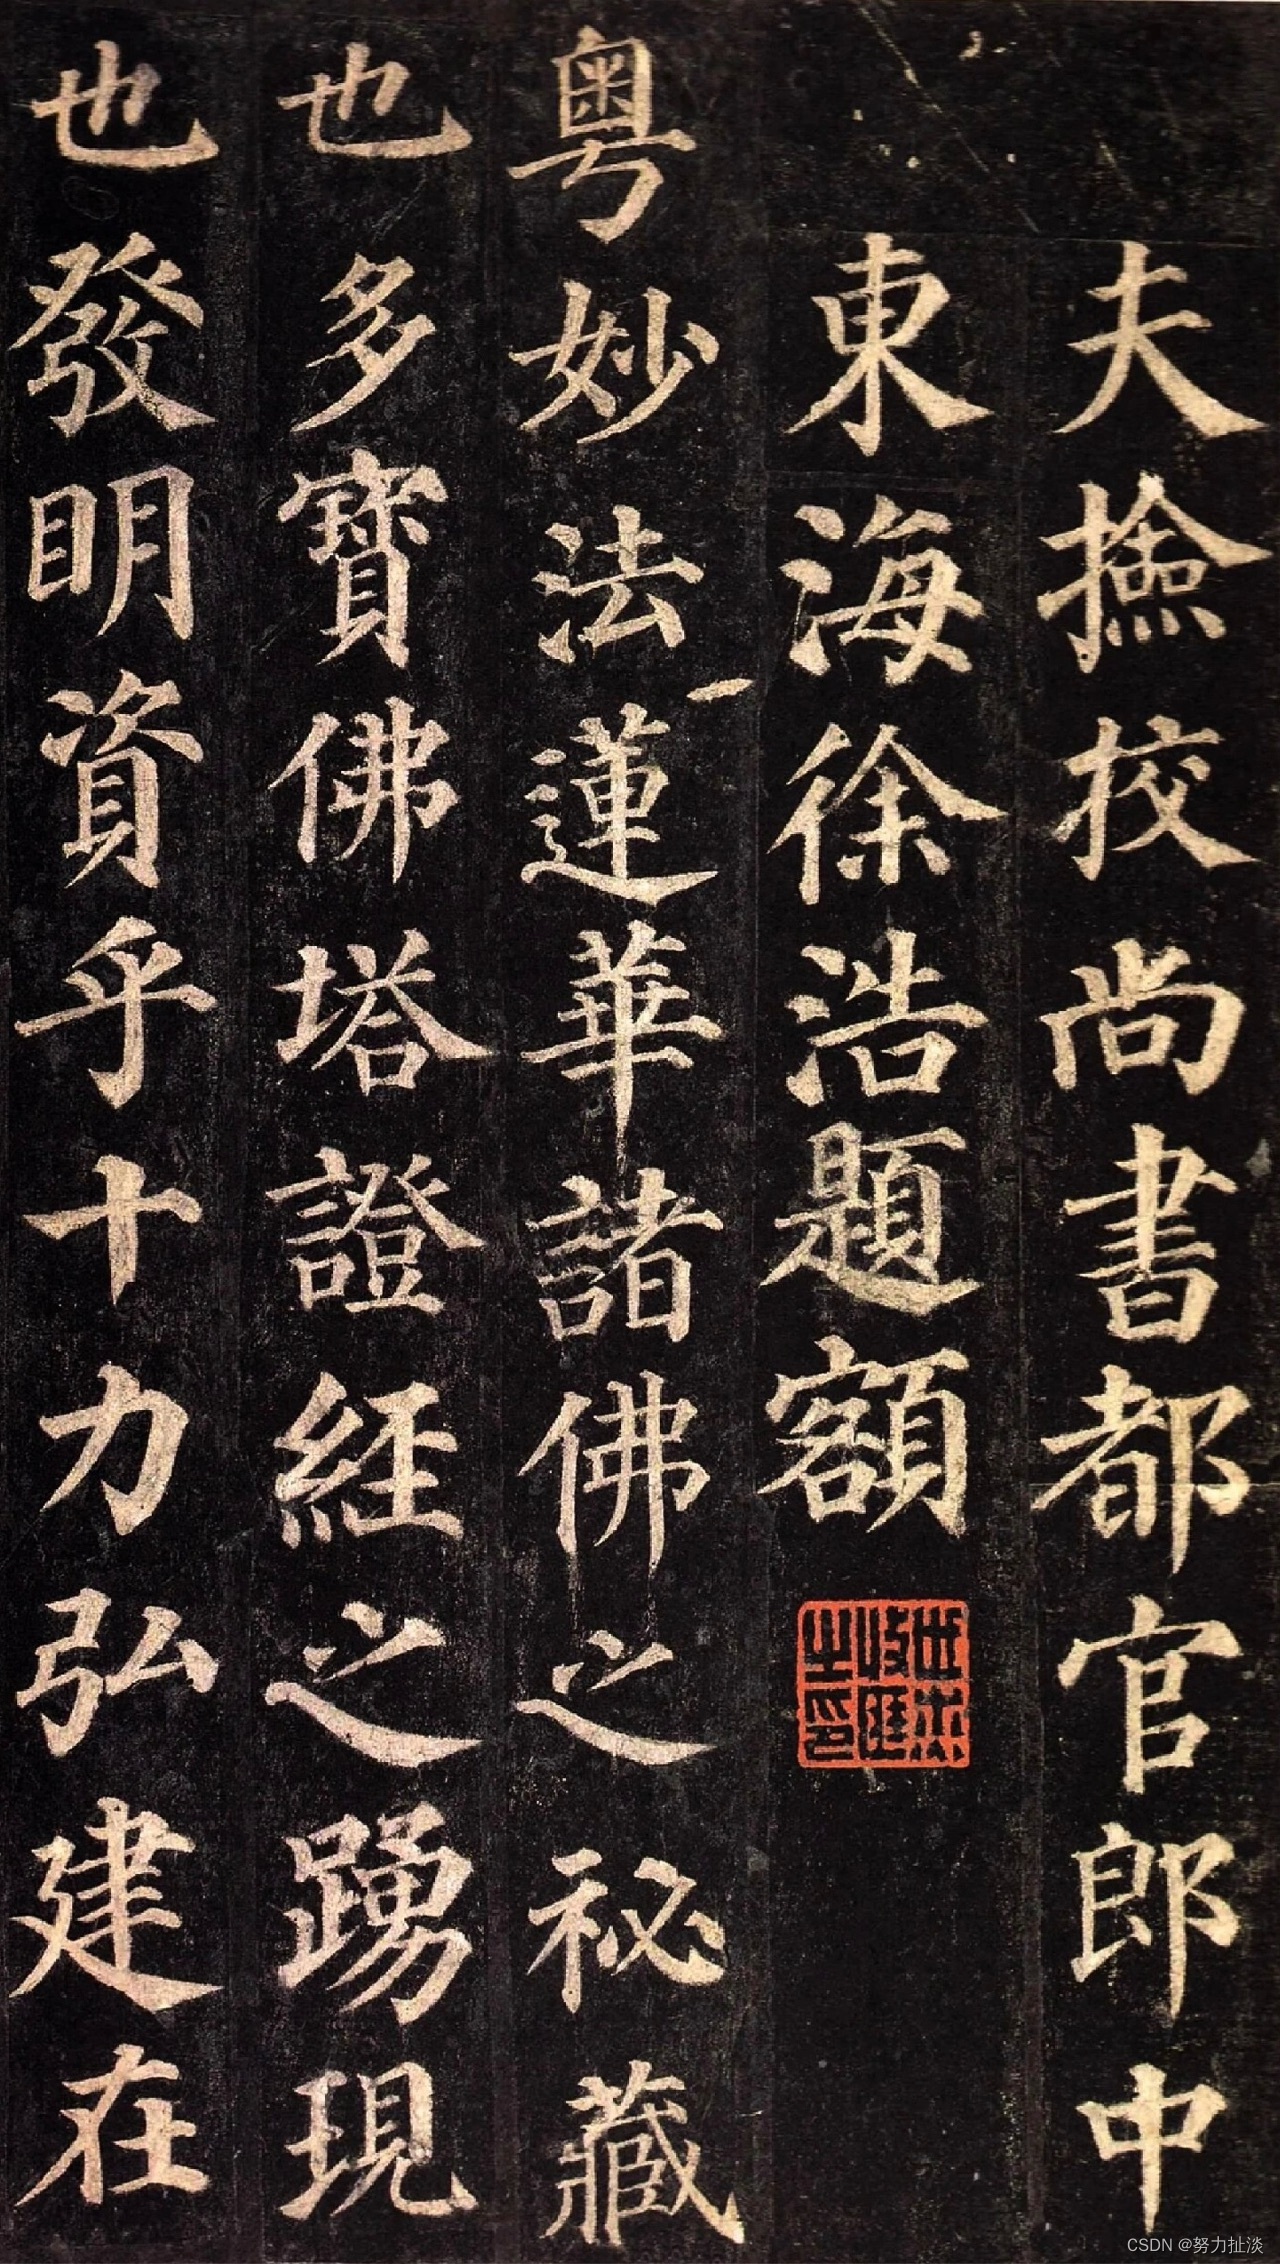 夫撿挍尚書都官郎中
東海徐浩題額
粤妙法蓮華諸佛之秘藏
也多寶佛塔證経之踴現
也發明資乎十力弘建在
CSDN @努力扯淡